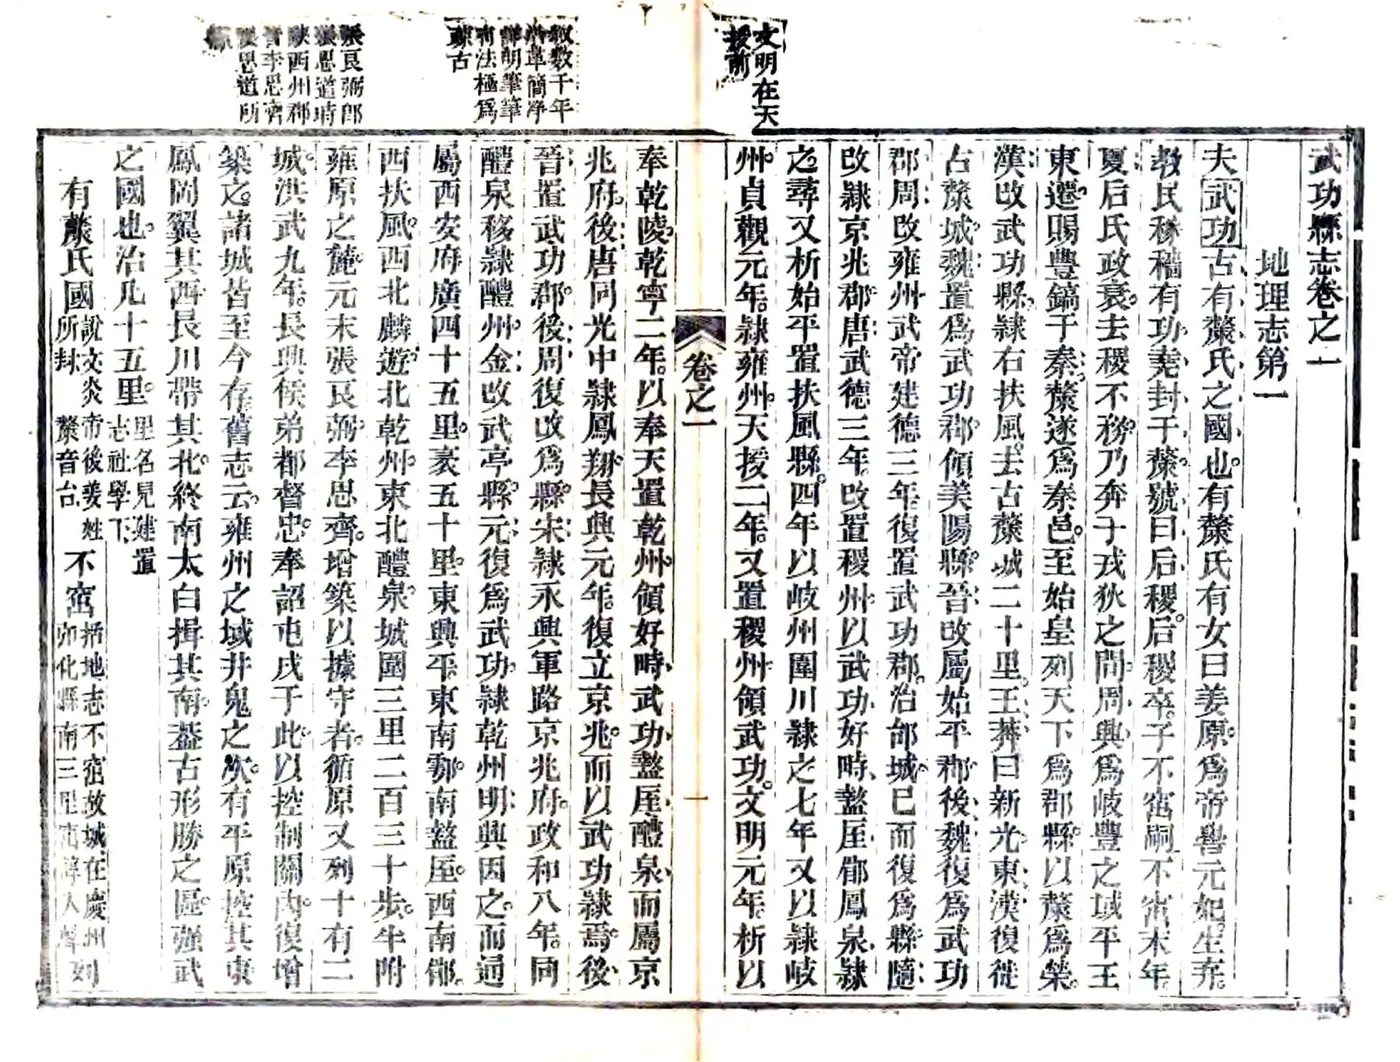 文明在天
授前
敘數千年
沿革簡淨
詳明筆筆
有法極爲
蒼古
張良弼郎
張思道時
陝西州郡
皆李思齊
張思道所
據
武功縣志卷之一
地理志第一
夫武功古有斄氏之國也有斄氏有女曰姜原爲帝嚳元妃生弃
教民稼穡有功堯封于斄號曰后稷后稷卒子不窋嗣不窋末年
夏后氏政衰去稷不務乃奔于戎狄之間周興爲岐豐之域平王
東遷賜豐鎬于秦斄遂爲秦邑至始皇列天下爲郡縣以斄爲榮
漢改武功縣隸右扶風去古斄城二十里王莽曰新光東漢復徙
古斄城魏置爲武功郡領美陽縣晉改屬始平郡後魏復爲武功
郡周改雍州武帝建德三年復置武功郡治郿城已而復爲縣隨
改隸京兆郡唐武德三年改置稷州以武功好畤盩厔郿鳳泉隸
之尋又析始平置扶風縣四年以岐州圍川隸之七年又以隸岐
州貞觀元年隸雍州天授二年又置稷州領武功文明元年析以
卷之一
一
奉乾陵乾寧二年以奉天置乾州領好畤武功盩厔醴泉而屬京
兆府後唐同光中隸鳳翔長興元年復立京兆而以武功隸焉後
晉置武功郡後周復改爲縣宋隸永興軍路京兆府政和八年同
醴泉移隸醴州金改武亭縣元復爲武功隸乾州明興因之而通
屬西安府廣四十五里袤五十里東興平東南鄠南盩厔西南郿
西扶風西北麟遊北乾州東北醴泉城圍三里二百三十步半附
雍原之麓元末張良弼李思齊增築以據守者循原又列十有二
城洪武九年長興侯弟都督忠奉詔屯戍于此以控制關內復增
築之諸城皆至今存舊志云雍州之域井鬼之次有平原控其東
鳳岡翼其西長川帶其北終南太白揖其南葢古形勝之區强武
之國也治凡十五里里名見建置
志社學下
有斄氏國說文炎帝後姜姓
所封 斄音台 不窋括地志不窋故城在慶州
弘化縣南三里